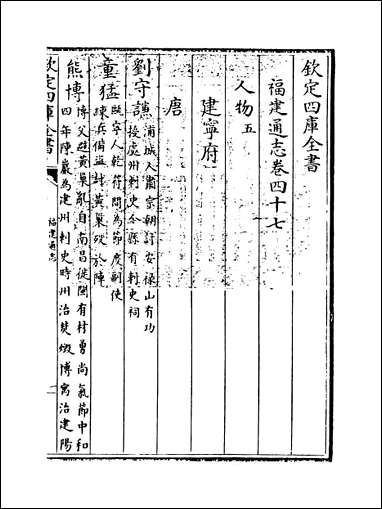 欽定四庫全書
福建通志卷四十七
人物五
建寧府
唐
劉守謙浦城人肅宗朝討安祿山有功
授處州刺史今縣有刺史祠
童猛甌寧人乾符間為節度副使
練兵備巡討黃巢歿於陣
熊博博父避黃巢亂自南昌徙閩有材勇尚氣節中和
四年陳巖為建州刺史時州治焚燬博寓治建陽
欽定四庫全書
福建通志
一